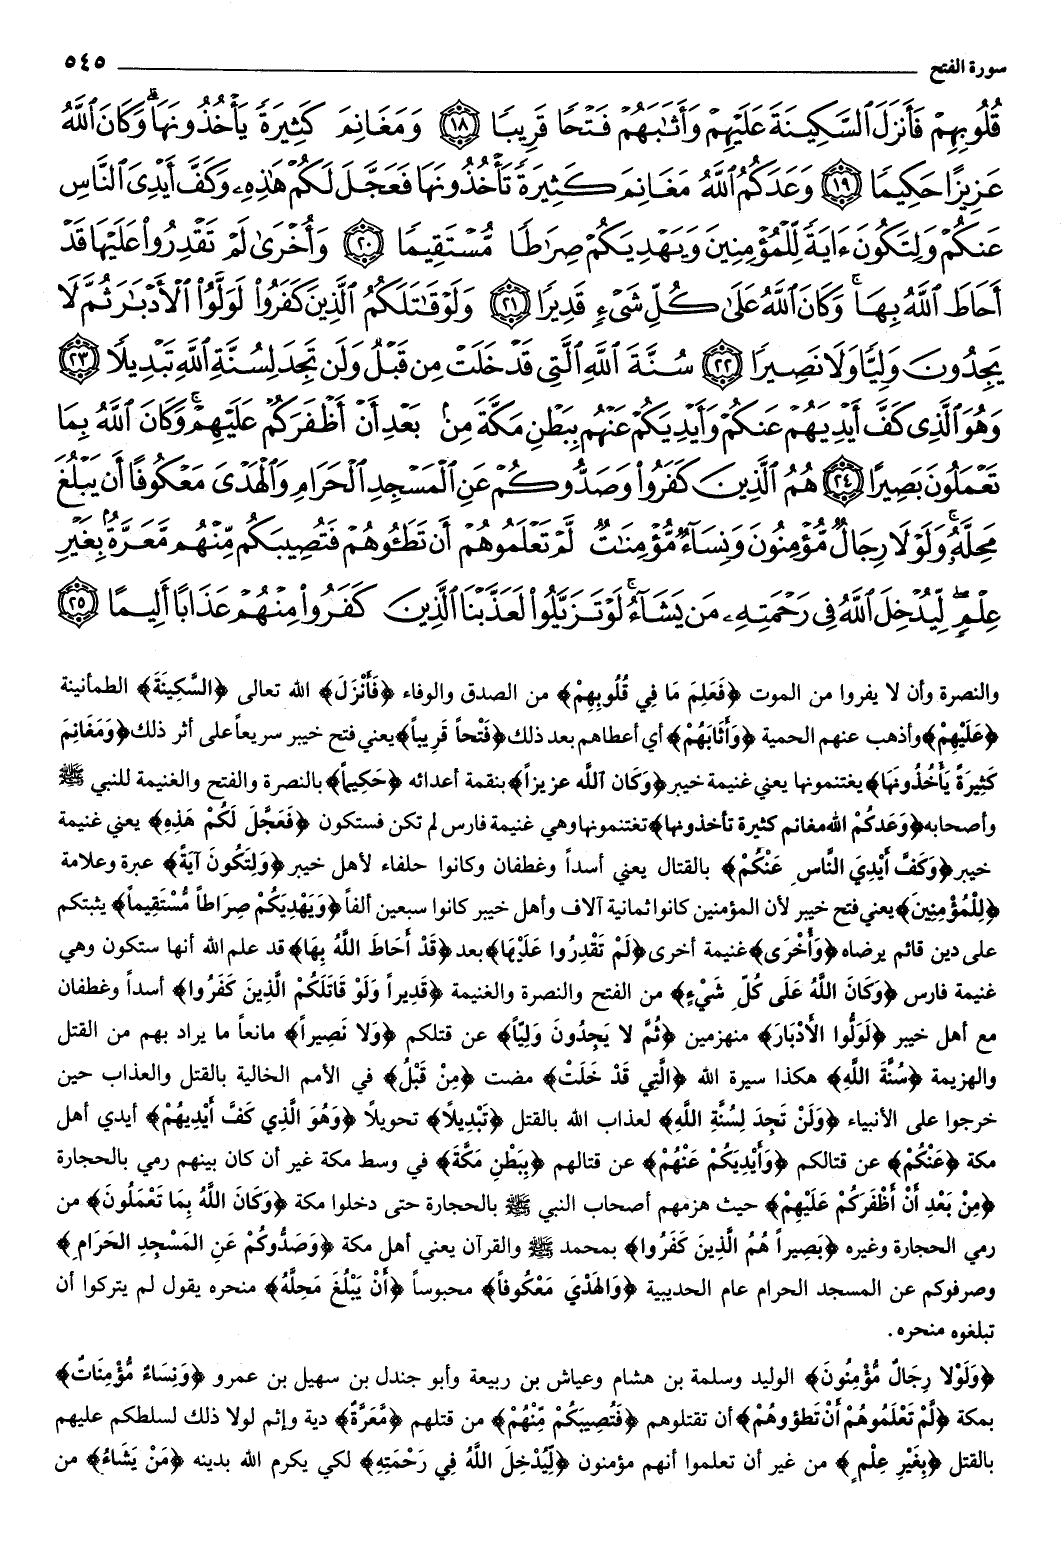 سورة الفتح ٥٤٥
قُلُوبِهِمْ فَأَنزَلَ ٱلسَّكِينَةَ عَلَيْهِمْ وَأَثَٰبَهُمْ فَتْحًا قَرِيبًا ١٨ وَمَغَانِمَ كَثِيرَةً يَأْخُذُونَهَا ۗ وَكَانَ ٱللَّهُ
عَزِيزًا حَكِيمًا ١٩ وَعَدَكُمُ ٱللَّهُ مَغَانِمَ كَثِيرَةً تَأْخُذُونَهَا فَعَجَّلَ لَكُمْ هَٰذِهِۦ وَكَفَّ أَيْدِىَ ٱلنَّاسِ
عَنكُمْ وَلِتَكُونَ ءَايَةً لِّلْمُؤْمِنِينَ وَيَهْدِيَكُمْ صِرَٰطًا مُّسْتَقِيمًا ٢٠ وَأُخْرَىٰ لَمْ تَقْدِرُوا۟ عَلَيْهَا قَدْ
أَحَاطَ ٱللَّهُ بِهَا ۚ وَكَانَ ٱللَّهُ عَلَىٰ كُلِّ شَىْءٍ قَدِيرًا ٢١ وَلَوْ قَٰتَلَكُمُ ٱلَّذِينَ كَفَرُوا۟ لَوَلَّوُا۟ ٱلْأَدْبَٰرَ ثُمَّ لَا
يَجِدُونَ وَلِيًّا وَلَا نَصِيرًا ٢٢ سُنَّةَ ٱللَّهِ ٱلَّتِى قَدْ خَلَتْ مِن قَبْلُ وَلَن تَجِدَ لِسُنَّةِ ٱللَّهِ تَبْدِيلًا ٢٣
وَهُوَ ٱلَّذِى كَفَّ أَيْدِيَهُمْ عَنكُمْ وَأَيْدِيَكُمْ عَنْهُم بِبَطْنِ مَكَّةَ مِنۢ بَعْدِ أَنْ أَظْفَرَكُمْ عَلَيْهِمْ ۚ وَكَانَ ٱللَّهُ بِمَا
تَعْمَلُونَ بَصِيرًا ٢٤ هُمُ ٱلَّذِينَ كَفَرُوا۟ وَصَدُّوكُمْ عَنِ ٱلْمَسْجِدِ ٱلْحَرَامِ وَٱلْهَدْىَ مَعْكُوفًا أَن يَبْلُغَ
مَحِلَّهُۥ ۚ وَلَوْلَا رِجَالٌ مُّؤْمِنُونَ وَنِسَآءٌ مُّؤْمِنَٰتٌ لَّمْ تَعْلَمُوهُمْ أَن تَطَـُٔوهُمْ فَتُصِيبَكُم مِّنْهُم مَّعَرَّةٌۢ بِغَيْرِ
عِلْمٍ ۖ لِّيُدْخِلَ ٱللَّهُ فِى رَحْمَتِهِۦ مَن يَشَآءُ ۚ لَوْ تَزَيَّلُوا۟ لَعَذَّبْنَا ٱلَّذِينَ كَفَرُوا۟ مِنْهُمْ عَذَابًا أَلِيمًا ٢٥
والنصرة وأن لا يفروا من الموت ﴿فَعَلِمَ مَا فِي قُلُوبِهِمْ﴾ من الصدق والوفاء ﴿فَأَنْزَلَ﴾ الله تعالى ﴿السَّكِينَةَ﴾ الطمأنينة
﴿عَلَيْهِمْ﴾ وأذهب عنهم الحمية ﴿وَأَثَابَهُمْ﴾ أي أعطاهم بعد ذلك ﴿فَتْحاً قَرِيباً﴾ يعني فتح خيبر سريعاً على أثر ذلك ﴿وَمَغَانِمَ
كَثِيرَةً يَأْخُذُونَهَا﴾ يغتنمونها يعني غنيمة خيبر ﴿وَكَان اللَّه عزيزاً﴾ بنقمة أعدائه ﴿حَكِيماً﴾ بالنصرة والفتح والغنيمة للنبي ﷺ
وأصحابه ﴿وَعَدكُمْ الله مغانم كثيرة تأخذونها﴾ تغتنمونها وهي غنيمة فارس لم تكن فستكون ﴿فَعَجَّلَ لَكُمْ هَذِهِ﴾ يعني غنيمة
خيبر ﴿وَكَفَّ أَيْدِيَ النَّاسِ عَنْكُمْ﴾ بالقتال يعني أسداً وغطفان وكانوا حلفاء لأهل خيبر ﴿وَلِتَكُونَ آيَةً﴾ عبرة وعلامة
﴿لِلْمُؤْمِنِينَ﴾ يعني فتح خيبر لأن المؤمنين كانوا ثمانية آلاف وأهل خيبر كانوا سبعين ألفاً ﴿وَيَهْدِيَكُمْ صِرَاطاً مُّسْتَقِيماً﴾ يثبتكم
على دين قائم يرضاه ﴿وَأُخْرَى﴾ غنيمة أخرى ﴿لَمْ تَقْدِرُوا عَلَيْهَا﴾ بعد ﴿قَدْ أَحَاطَ اللَّهُ بِهَا﴾ قد علم الله أنها ستكون وهي
غنيمة فارس ﴿وَكَانَ اللَّهُ عَلَى كُلِّ شَيْءٍ﴾ من الفتح والنصرة والغنيمة ﴿قَدِيراً وَلَوْ قَاتَلَكُمْ الَّذِينَ كَفَرُوا﴾ أسداً وغطفان
مع أهل خيبر ﴿لَوَلَّوا الأَدْبَارَ﴾ منهزمين ﴿ثُمَّ لا يَجِدُونَ وَلِيّاً﴾ عن قتلكم ﴿وَلا نَصِيراً﴾ مانعاً ما يراد بهم من القتل
والهزيمة ﴿سُنَّةَ اللَّهِ﴾ هكذا سيرة الله ﴿الَّتِي قَدْ خَلَتْ﴾ مضت ﴿مِنْ قَبْلُ﴾ في الأمم الخالية بالقتل والعذاب حين
خرجوا على الأنبياء ﴿وَلَنْ تَجِدَ لِسُنَّةِ اللَّهِ﴾ لعذاب الله بالقتل ﴿تَبْدِيلاً﴾ تحويلاً ﴿وَهُوَ الَّذِي كَفَّ أَيْدِيهُمْ﴾ أيدي أهل
مكة ﴿عَنْكُمْ﴾ عن قتالكم ﴿وَأَيْدِيَكُمْ عَنْهُمْ﴾ عن قتالهم ﴿بِبَطْنِ مَكَّةَ﴾ في وسط مكة غير أن كان بينهم رمي بالحجارة
﴿مِنْ بَعْدِ أَنْ أَظْفَرَكُمْ عَلَيْهِمْ﴾ حيث هزمهم أصحاب النبي ﷺ بالحجارة حتى دخلوا مكة ﴿وَكَانَ اللَّهُ بِمَا تَعْمَلُونَ﴾ من
رمي الحجارة وغيره ﴿بَصِيراً هُمُ الَّذِينَ كَفَرُوا﴾ بمحمد ﷺ والقرآن يعني أهل مكة ﴿وَصَدُّوكُمْ عَنِ المَسْجِدِ الحَرَامِ﴾
وصرفوكم عن المسجد الحرام عام الحديبية ﴿وَالهَدْيَ مَعْكُوفاً﴾ محبوساً ﴿أَنْ يَبْلُغَ مَحِلَّهُ﴾ منحره يقول لم يتركوا أن
تبلغوه منحره.
﴿وَلَوْلا رِجَالٌ مُّؤْمِنُونَ﴾ الوليد وسلمة بن هشام وعياش بن ربيعة وأبو جندل بن سهيل بن عمرو ﴿وَنِسَاءٌ مُّؤْمِنَاتٌ﴾
بمكة ﴿لَّمْ تَعْلَمُوهُمْ أَنْ تَطؤوهُمْ﴾ أن تقتلوهم ﴿فَتُصِيبَكُمْ مِّنْهُمْ﴾ من قتلهم ﴿مَّعَرَّةٌ﴾ دية وإثم لولا ذلك لسلطكم عليهم
بالقتل ﴿بِغَيْرِ عِلْمٍ﴾ من غير أن تعلموا أنهم مؤمنون ﴿لِّيُدْخِلَ اللَّهُ فِي رَحْمَتِهِ﴾ لكي يكرم الله بدينه ﴿مَنْ يَشَاءُ﴾ من